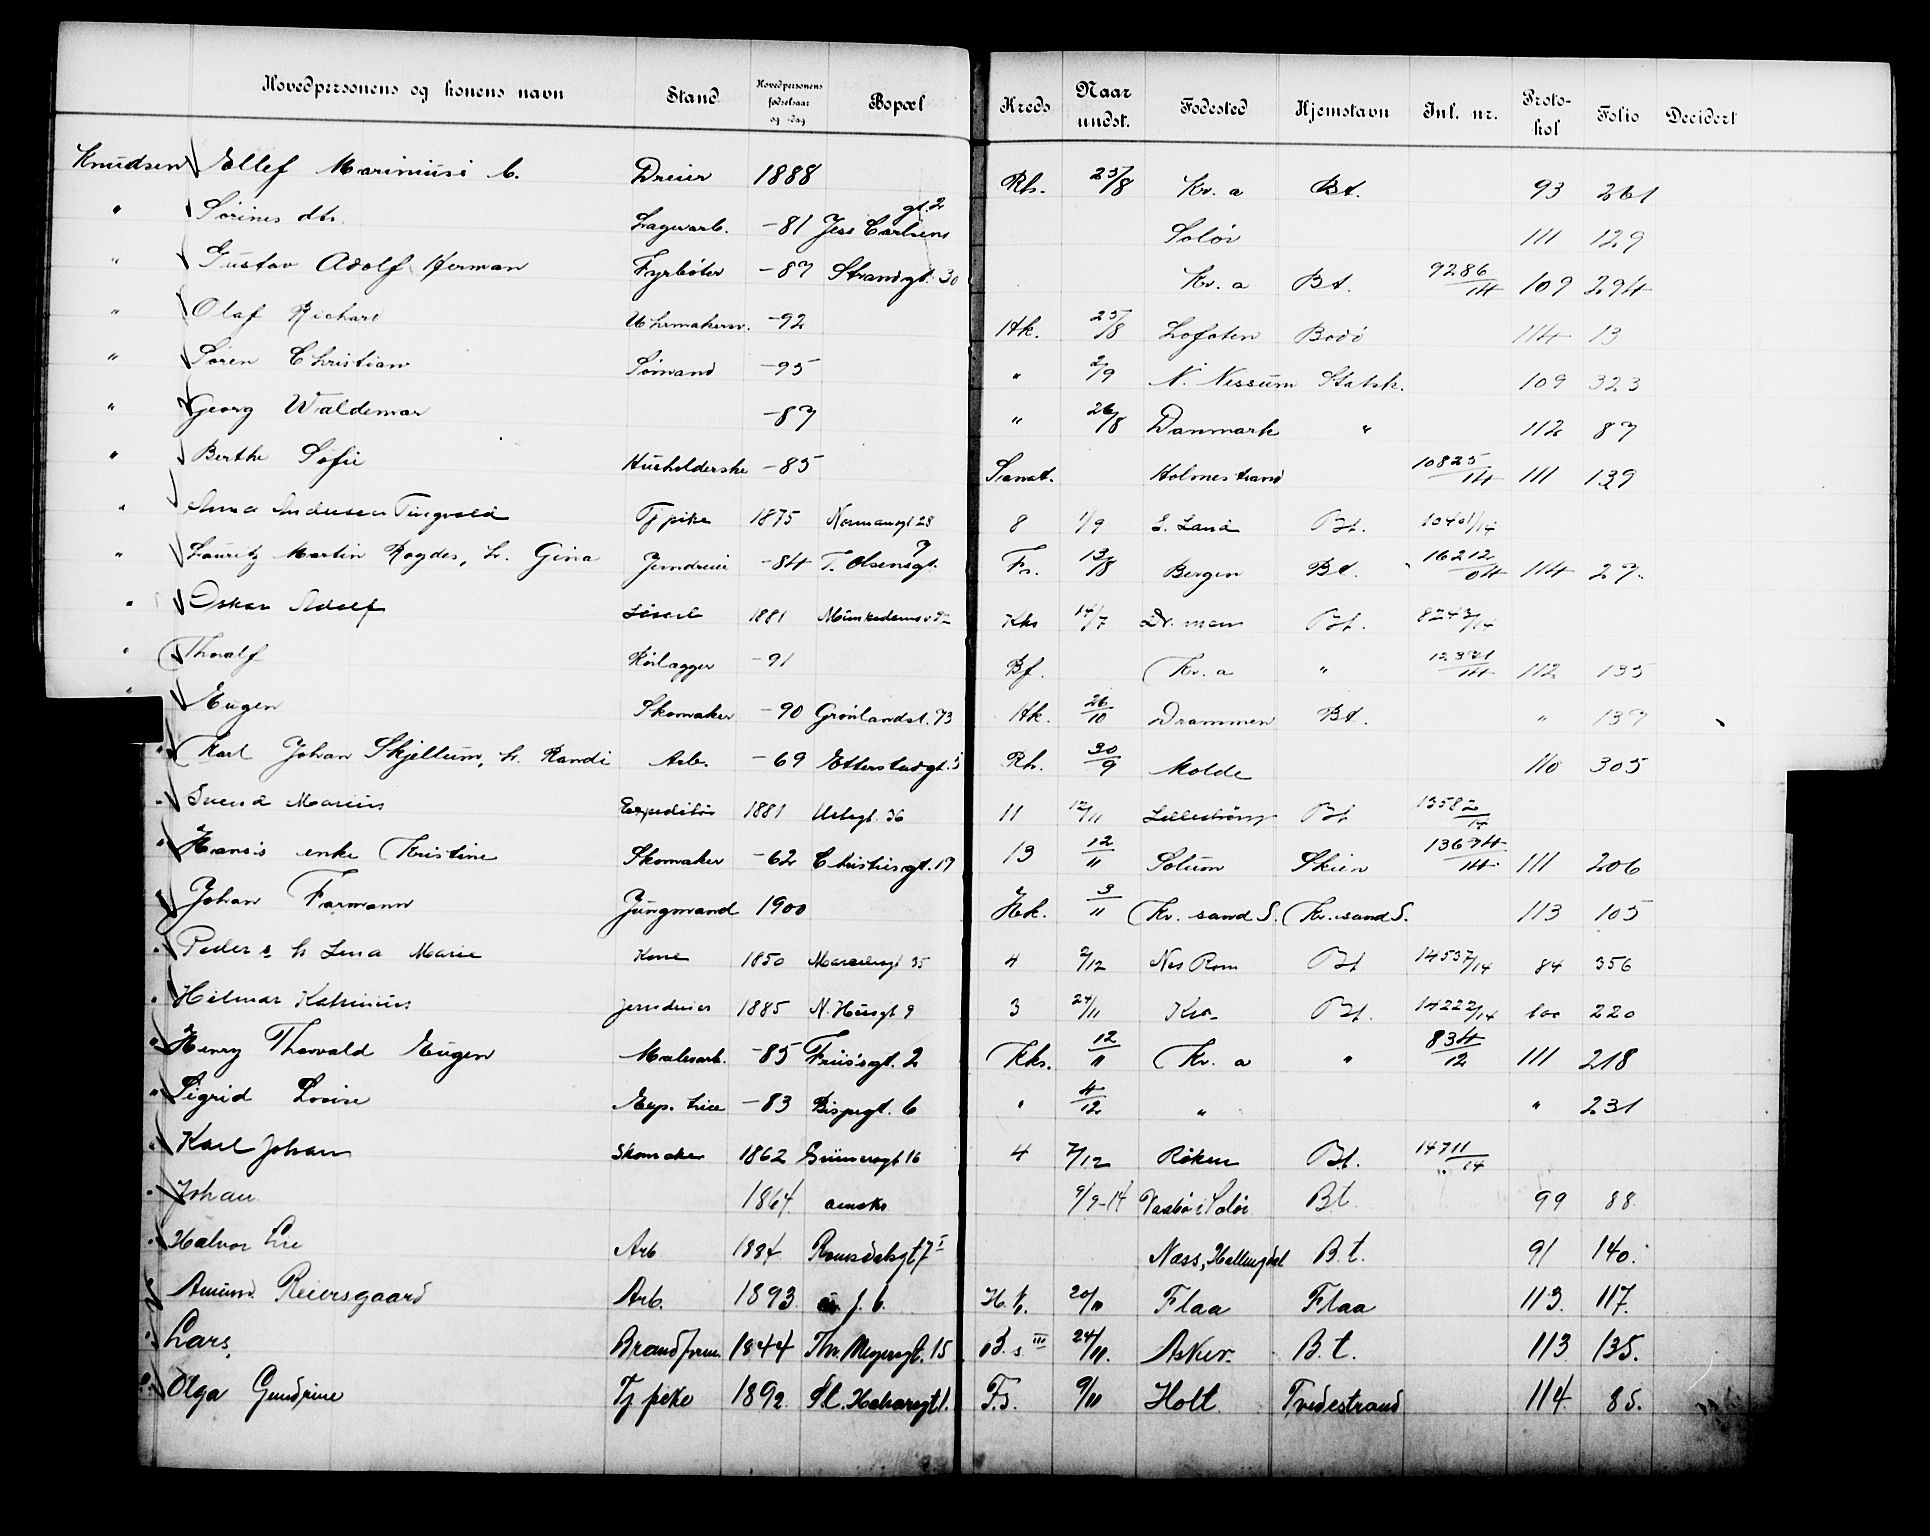 Hovedpersonens og konens navn Stand Hovedpersonens fødselsaar og -dag Bopæl Kreds Naar undst. Fødested Hjemstavn Inl. nr. Protokol Folio Decidert
Knudsen Ellef Mariniusi Dreier 1888 Rh. 25/8 Kr. a Bt. 93 261
" Sørines dtr. Lagerarb. -81 Jess Carlsens gt. 2 Solør 111 129
" Gustav Adolf Herman Fyrbøter -87 Strandgt. 30 Kr. a Bt. 9286/14 109 294
" Olaf Richard Uhrmakersv. -92 Hk. 25/8 Lofoten Bodø 114 13
" Søren Christian Sømand -95 " 2/9 N. Nessum Statsk. 109 323
" Georg Waldemar -87 " 26/8 Danmark " 112 87
" Berthe Sofie Husholderske -85 Sanat. Holmestrand 10825/14 111 139
" Anna Andersen Tingvold Tj pike 1875 Normansgt 28 8 1/9 S. Land Bt. 10401/14
" Lauritz Martin Rogdes, h. Gina Jerndreier -84 T. Olsensgt. 7 Fs. 13/8 Bergen Bt. 16212/04 114 27.
" Oskar Adolf 1881 Kks 14/7 Dr. men Bt. 8243/14
" Thoralf Rørlægger -91 Bf. Kr. a " 112 135
" Eugen Skomaker -90 Grønlandsl. 73 Hk. 26/10 Drammen Bt. " 137
" Karl Johan Skjellum, h. Randi Arb. -69 Etterstadgt. 5 Rh. 30/9 Molde 110 305
" Svend Marius Expeditør 1881 Urtegt. 36 11 12/11 Lillestrøm Bt 13582/14
" Hansis enke Kristine Skomaker -62 Christiesgt. 17 13 12/11 Solum Skien 13694/14 111 206
" Johan Farmann Jungmand 1900 Hk. 3/11 Kr. sand S. Kr. sand S. 113 105
" Peder s h Lina Marie Kone 1850 Marselisgt 35 4 2/12 Nes Rom Bt 14537/14 84 356
" Hilmar Katrinius Jerndreier 1885 N. Husgt 9 3 24/11 Kra Bt. 14222/14 100 220
" Henry Thorvald Eugen Malerarb. -85 Friisgt. 2 Kks. 12/11 Kr. a " 834/12 111 218
" Sigrid Lovise -83 Bispegt. 6 " 4/12 " " 231
" Karl Johan Skomaker 1862 Brünersgt 16 4 7/12 Røken Bt. 14711/14
" Johan 1864 9/9-14 Vaaler i Solør Bt. 99 88
" Halvor Lie Arb 1884 Romsdalsgt. 7 I Næss, Hallingdal B.t. 91 140.
" Amund Reiersgaard Arb. 1893 f. b. H.k. 20/11 Flaa Flaa 113. 117.
" Lars, Brandform. 1844 Thv. Meyersgt. 15 B. s. III 24/11. Asker B. t. 113 135.
" Olga Gundrine Tj pike 1892 St. Halvorsgt 1. F.s. 9/11 Holt Tvedestrand 114 85.